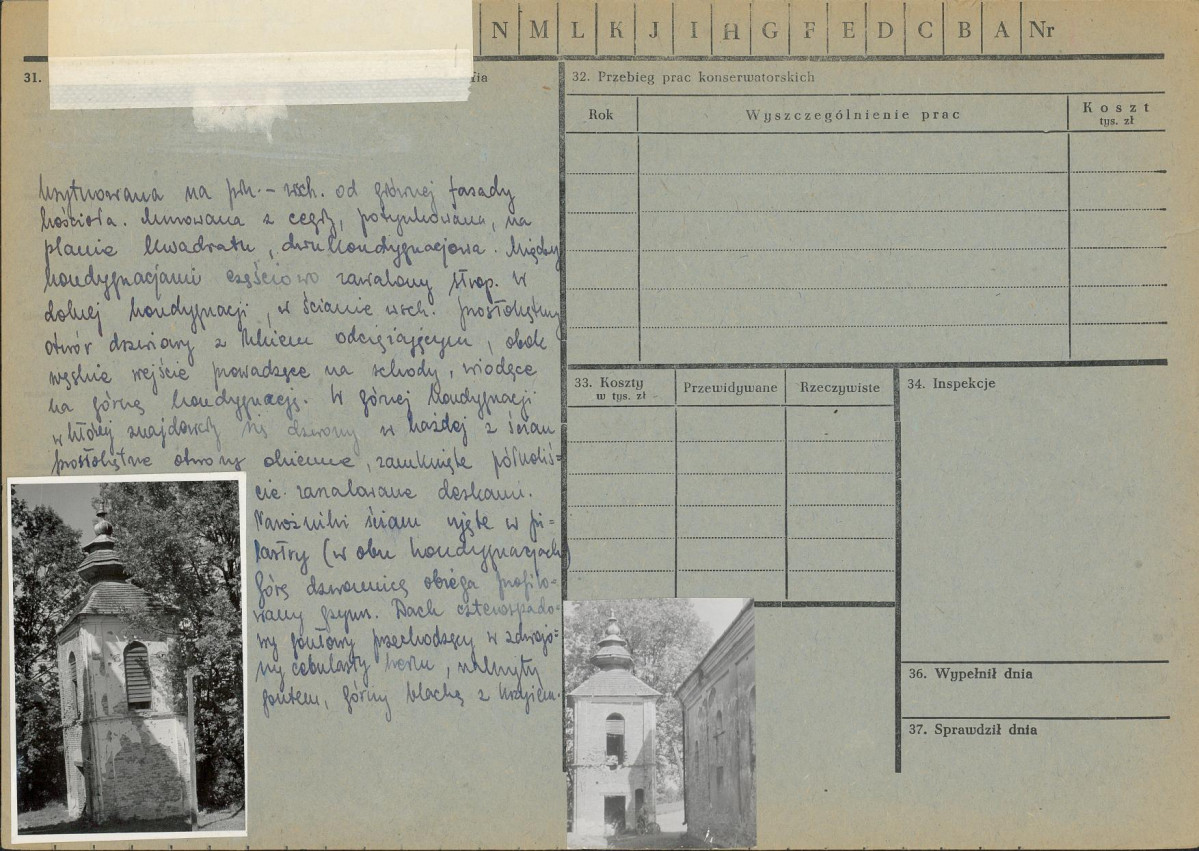 N M L K J I H G F E D C B A Nr
31.
32. Przebieg prac konserwatorskich
Rok Wyszczególnienie prac Koszt
tys. zł
Usytuowana na płn.-wsch. od głównej fasady
kościoła. Murowana z cegły, potynkowana, na
planie kwadratu, dwukondygnacjowa. Między
kondygnacjami częściowo zawalony strop. W
dolnej kondygnacji, w ścianie wsch. prostokątny
otwór drzwiowy z łukiem odciążającym, obok
wąskie wejście prowadzące na schody, wiodące
na górną kondygnację. W górnej kondygnacji
w której znajdowały się dzwony w każdej z ścian
prostokątne otwory okienne, zamknięte półkoliś-
cie. zasalowane deskami.
Narożniki ścian ujęte w pi-
lastry (w obu kondygnacjach)
Górą dzwonnicę obiega profilo-
wany gzyms. Dach czterospado-
wy gontowy przechodzący w zdwojo-
ny cebulasty hełm, nakryty
gontem, górny blachą z krzyżem.
33. Koszty
w tys. zł
Przewidywane Rzeczywiste
34. Inspekcje
36. Wypełnił dnia
37. Sprawdził dnia